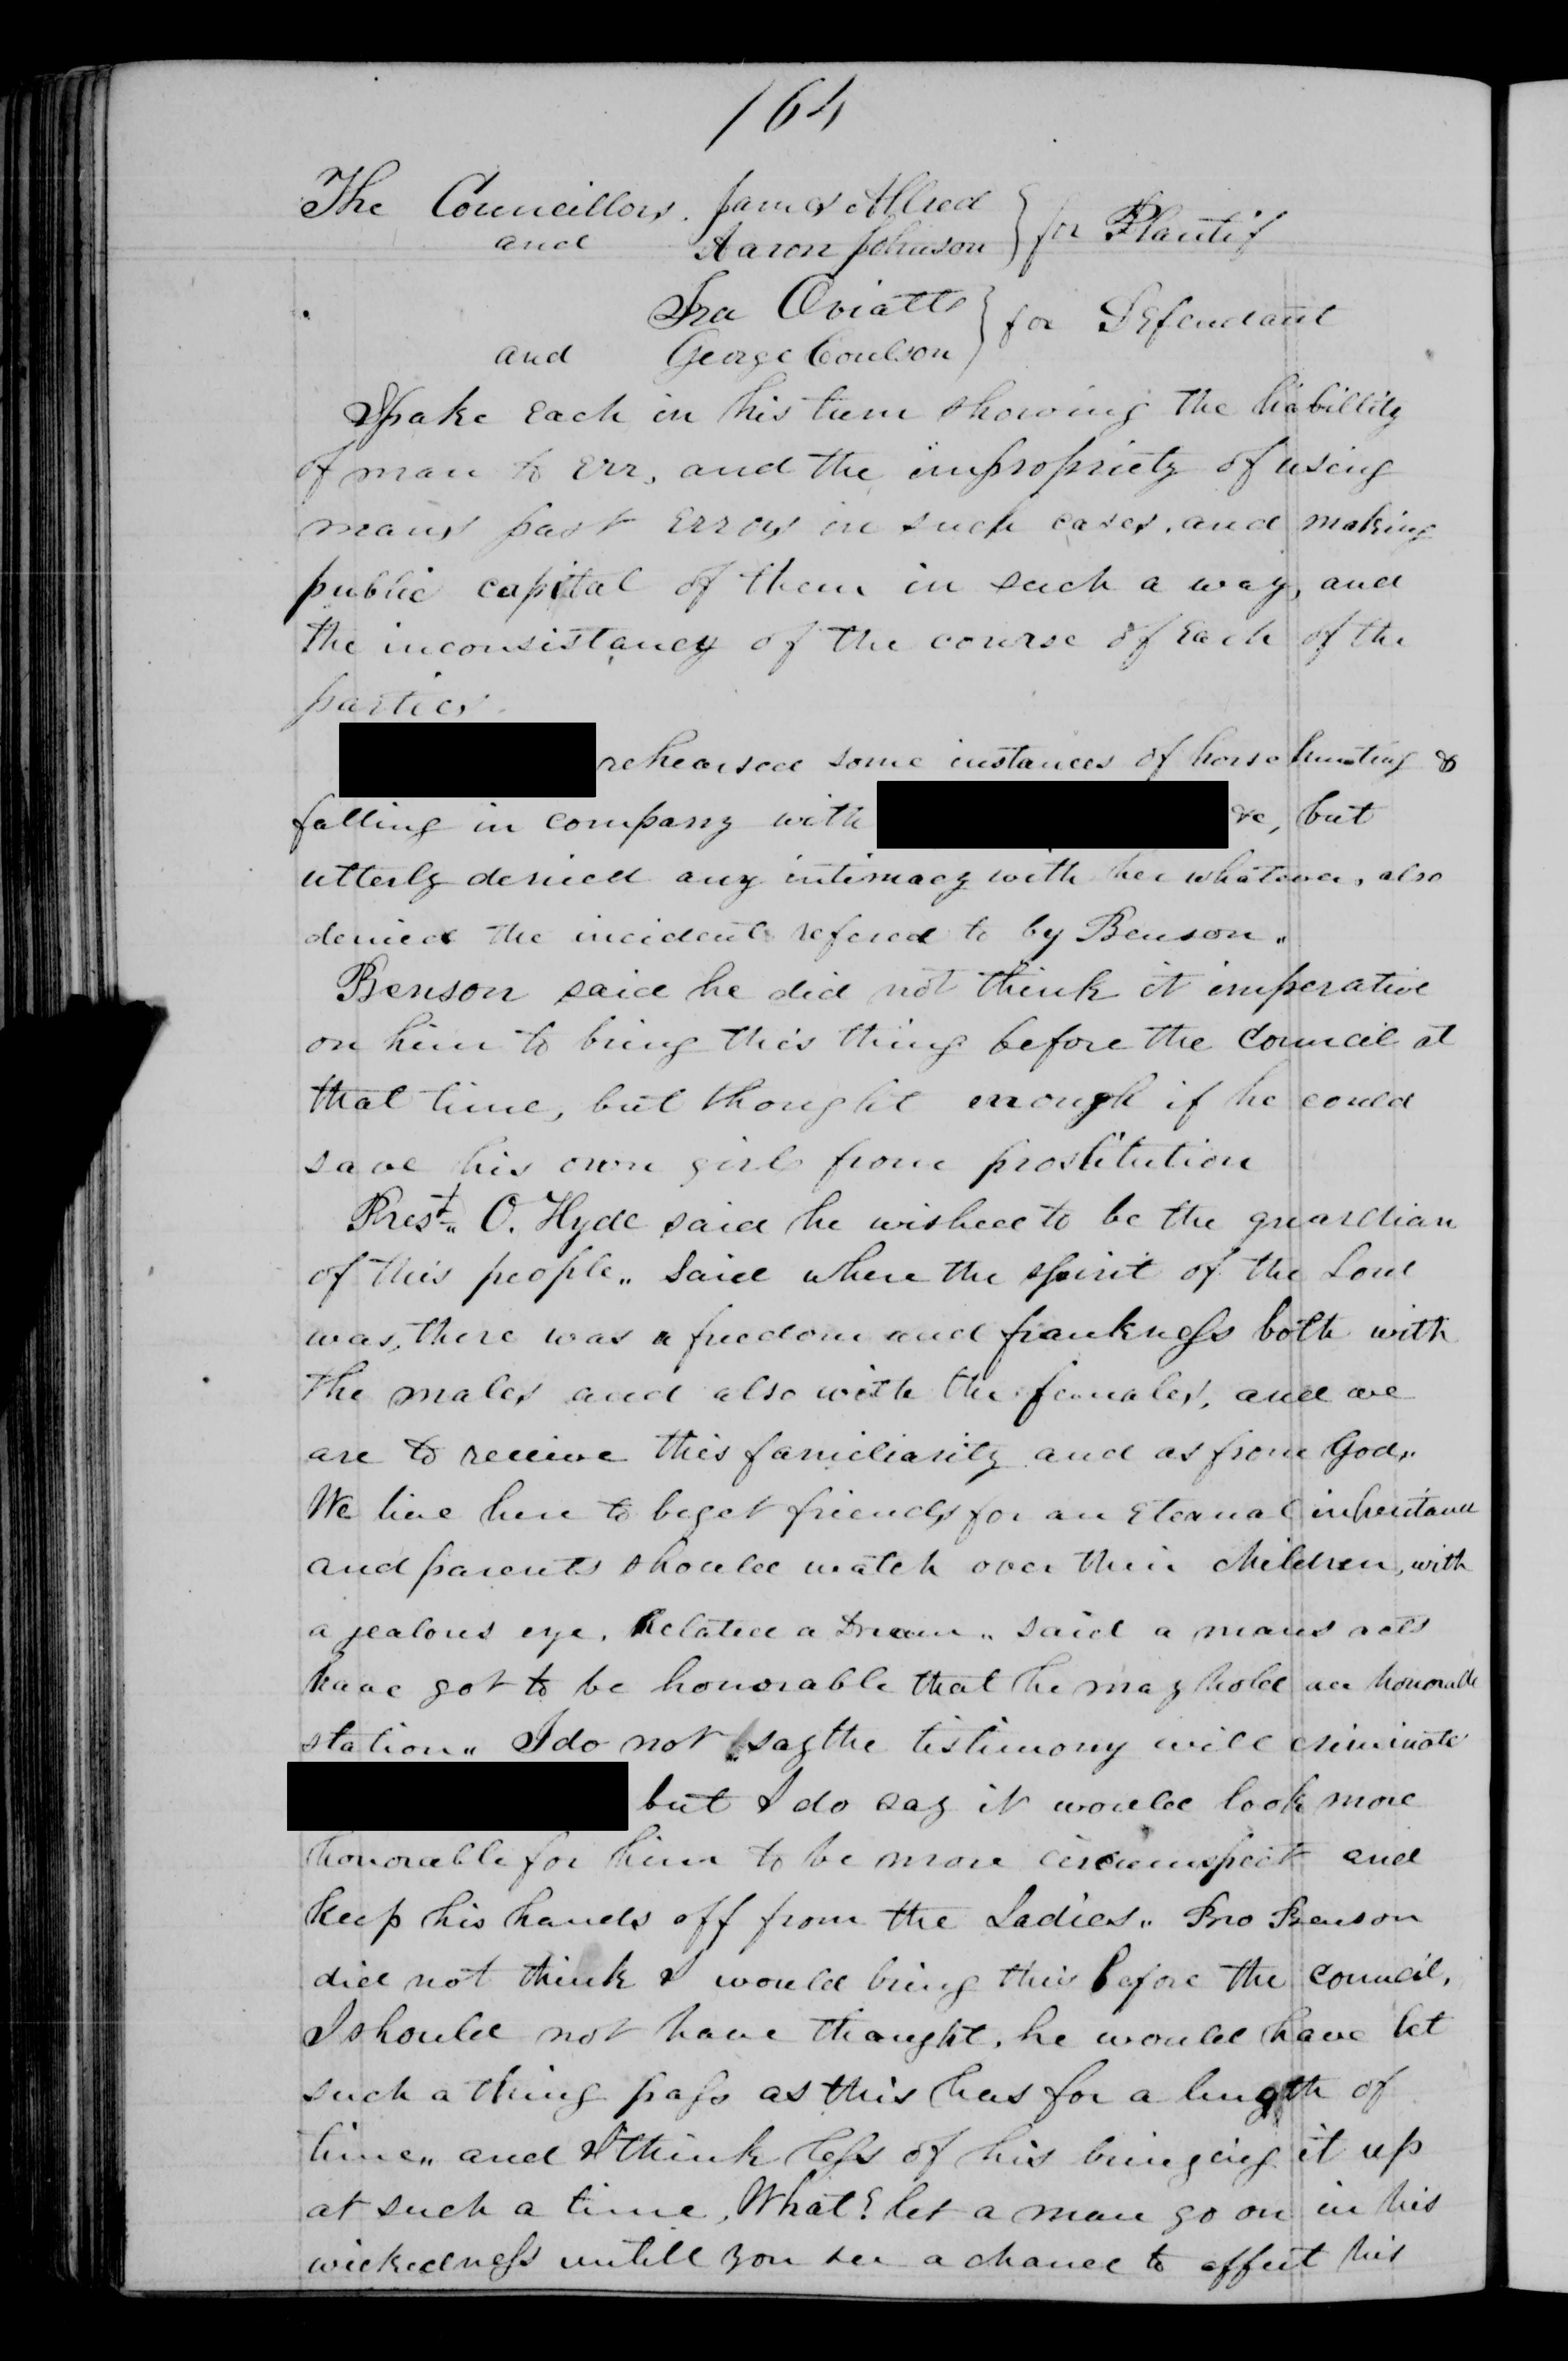 164
The Councillors. James Allred } for Plantif
and Aaron Johnson
Ira Oviatts } for Defendant
and George Coulson
Spake Each in his turn showing the liabillity
of man to Err, and the impropriety of using
mans past Errors in such cases, and making
public capital of them in such a way, and
the inconsistancy of the course of Each of the
parties.
rehearsed some instances of horse hunting &
falling in company with &c, but
utterly denied any intimacy with her whatever, also
denied the incident refered to by Benson„
Benson said he did not think it imperative
on him to bring this thing before the Council at
that time, but thought enough if he could
save his own girl from prostitution
Prest„ O. Hyde said he wished to be the guardian
of this people„ Said where the spirit of the Lord
was, there was a freedom and frankness both with
the males and also with the females, and we
are to receive this familiarity and as from God„
We live here to beget friends for an Eternal inheritance
and parents should watch over their children, with
a jealous eye. Related a Dream„ said a mans acts
have got to be honorable that he may hold an honorable
station„ I do not say the testimony will criminate
but I do say it would look more
honorable for him to be more circumspect and
keep his hands off from the Ladies„ Bro Benson
did not think I would bring this before the council,
I should not have thought, he would have let
such a thing pass as this has for a length of
time„ and I think less of his bringing it up
at such a time, What! let a man go on in his
wickedness untill you see a chance to effect his